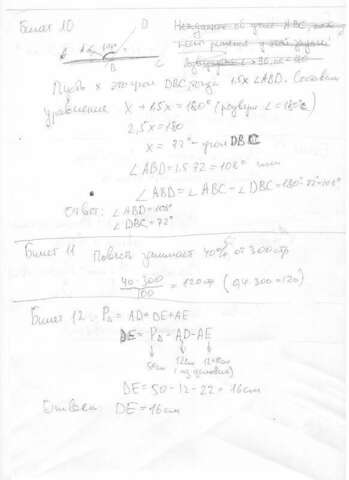 Билет 10
D
A
B
C
Пусть x это угол DBC, тогда 1.5x ∠ABD. Составим
уравнение x + 1.5x = 180° (развур ∠ = 180°)
2,5x = 180
x = 72° - угол DBC
∠ABD = 1.5 · 72 = 108° или
∠ABD = ∠ABC - ∠DBC = 180° - 72° = 108°
Ответ: ∠ABD = 108°
∠DBC = 72°
Билет 11 Повесть занимает 40% от 300 стр
40 · 300 / 100 = 120 стр (0,4 · 300 = 120)
Билет 12. P△ = AD + DE + AE
DE = P△ = AD - AE
50см 12см
(из условия)
DE = 50 - 12 - 22 = 16 см
DE = 16 см